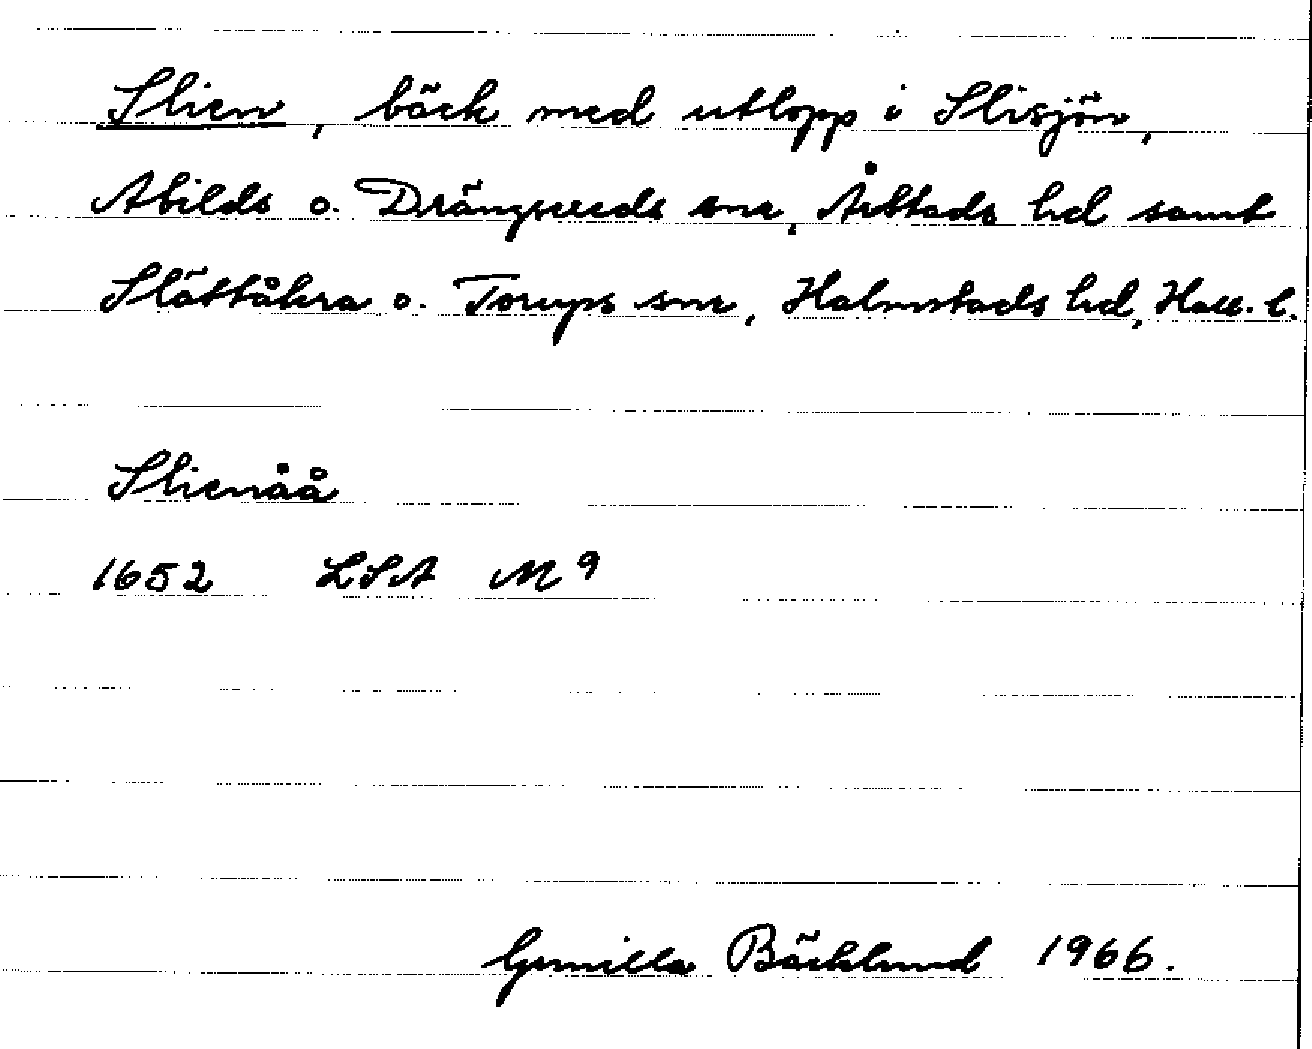 Slien, bäck med utlopp i Slisjön,
Abilds o. Drängsereds snr, Årstads hd samt
Slättåkra o. Torups snr, Halmstads hd, Hall. l.
Slienåå
1652 LSA M 9
Gunilla Bäcklund 1966.